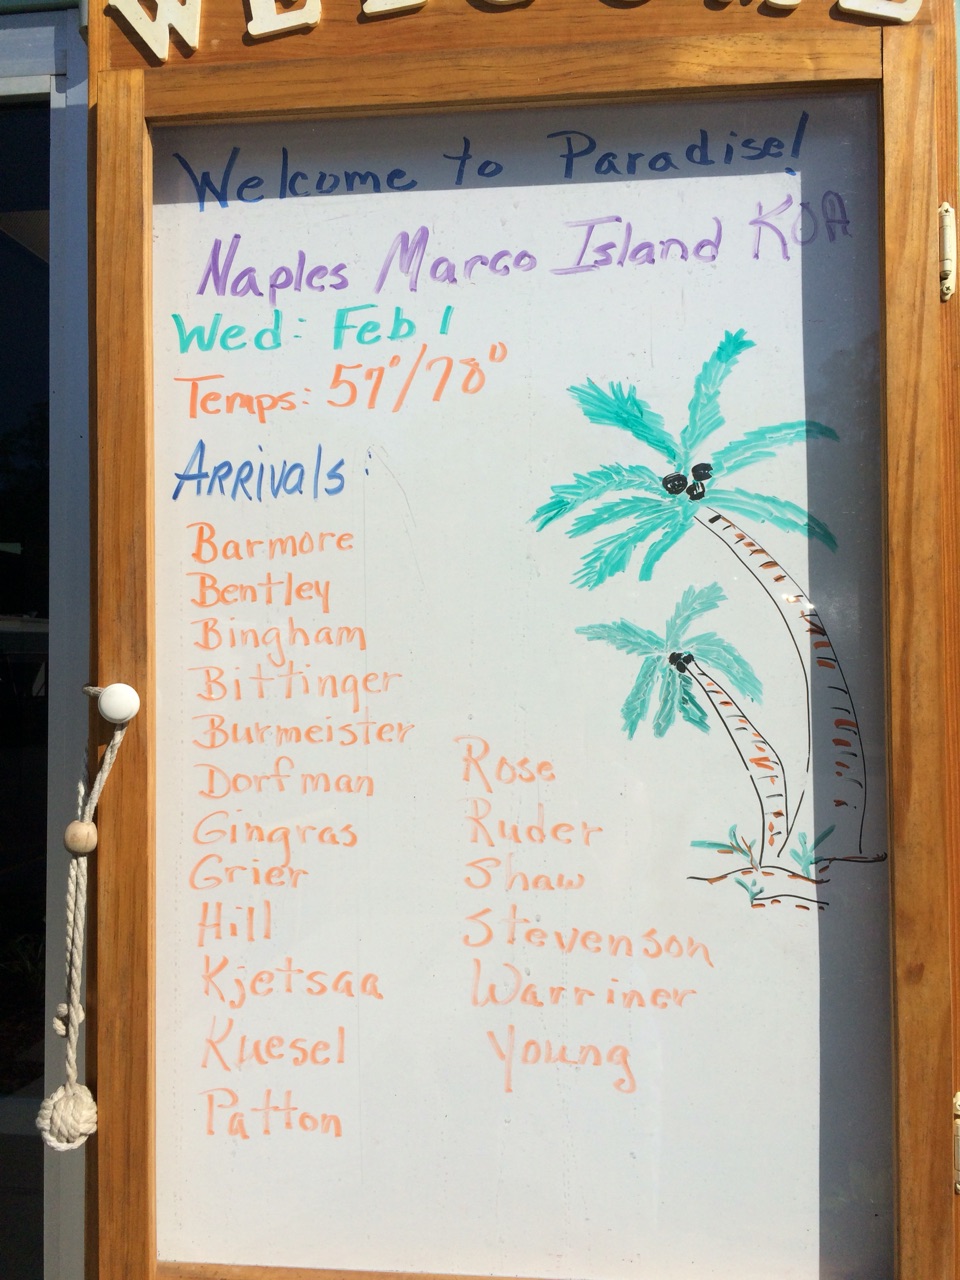 WELCOME
Welcome to Paradise!
Naples Marco Island KOA
Wed: Feb 1
Temps: 57°/78°
ARRIVALS:
Barmore
Bentley
Bingham
Bittinger
Burmeister
Dorfman
Gingras
Grier
Hill
Kjetsaa
Kuesel
Patton
Rose
Ruder
Shaw
Stevenson
Warriner
Young